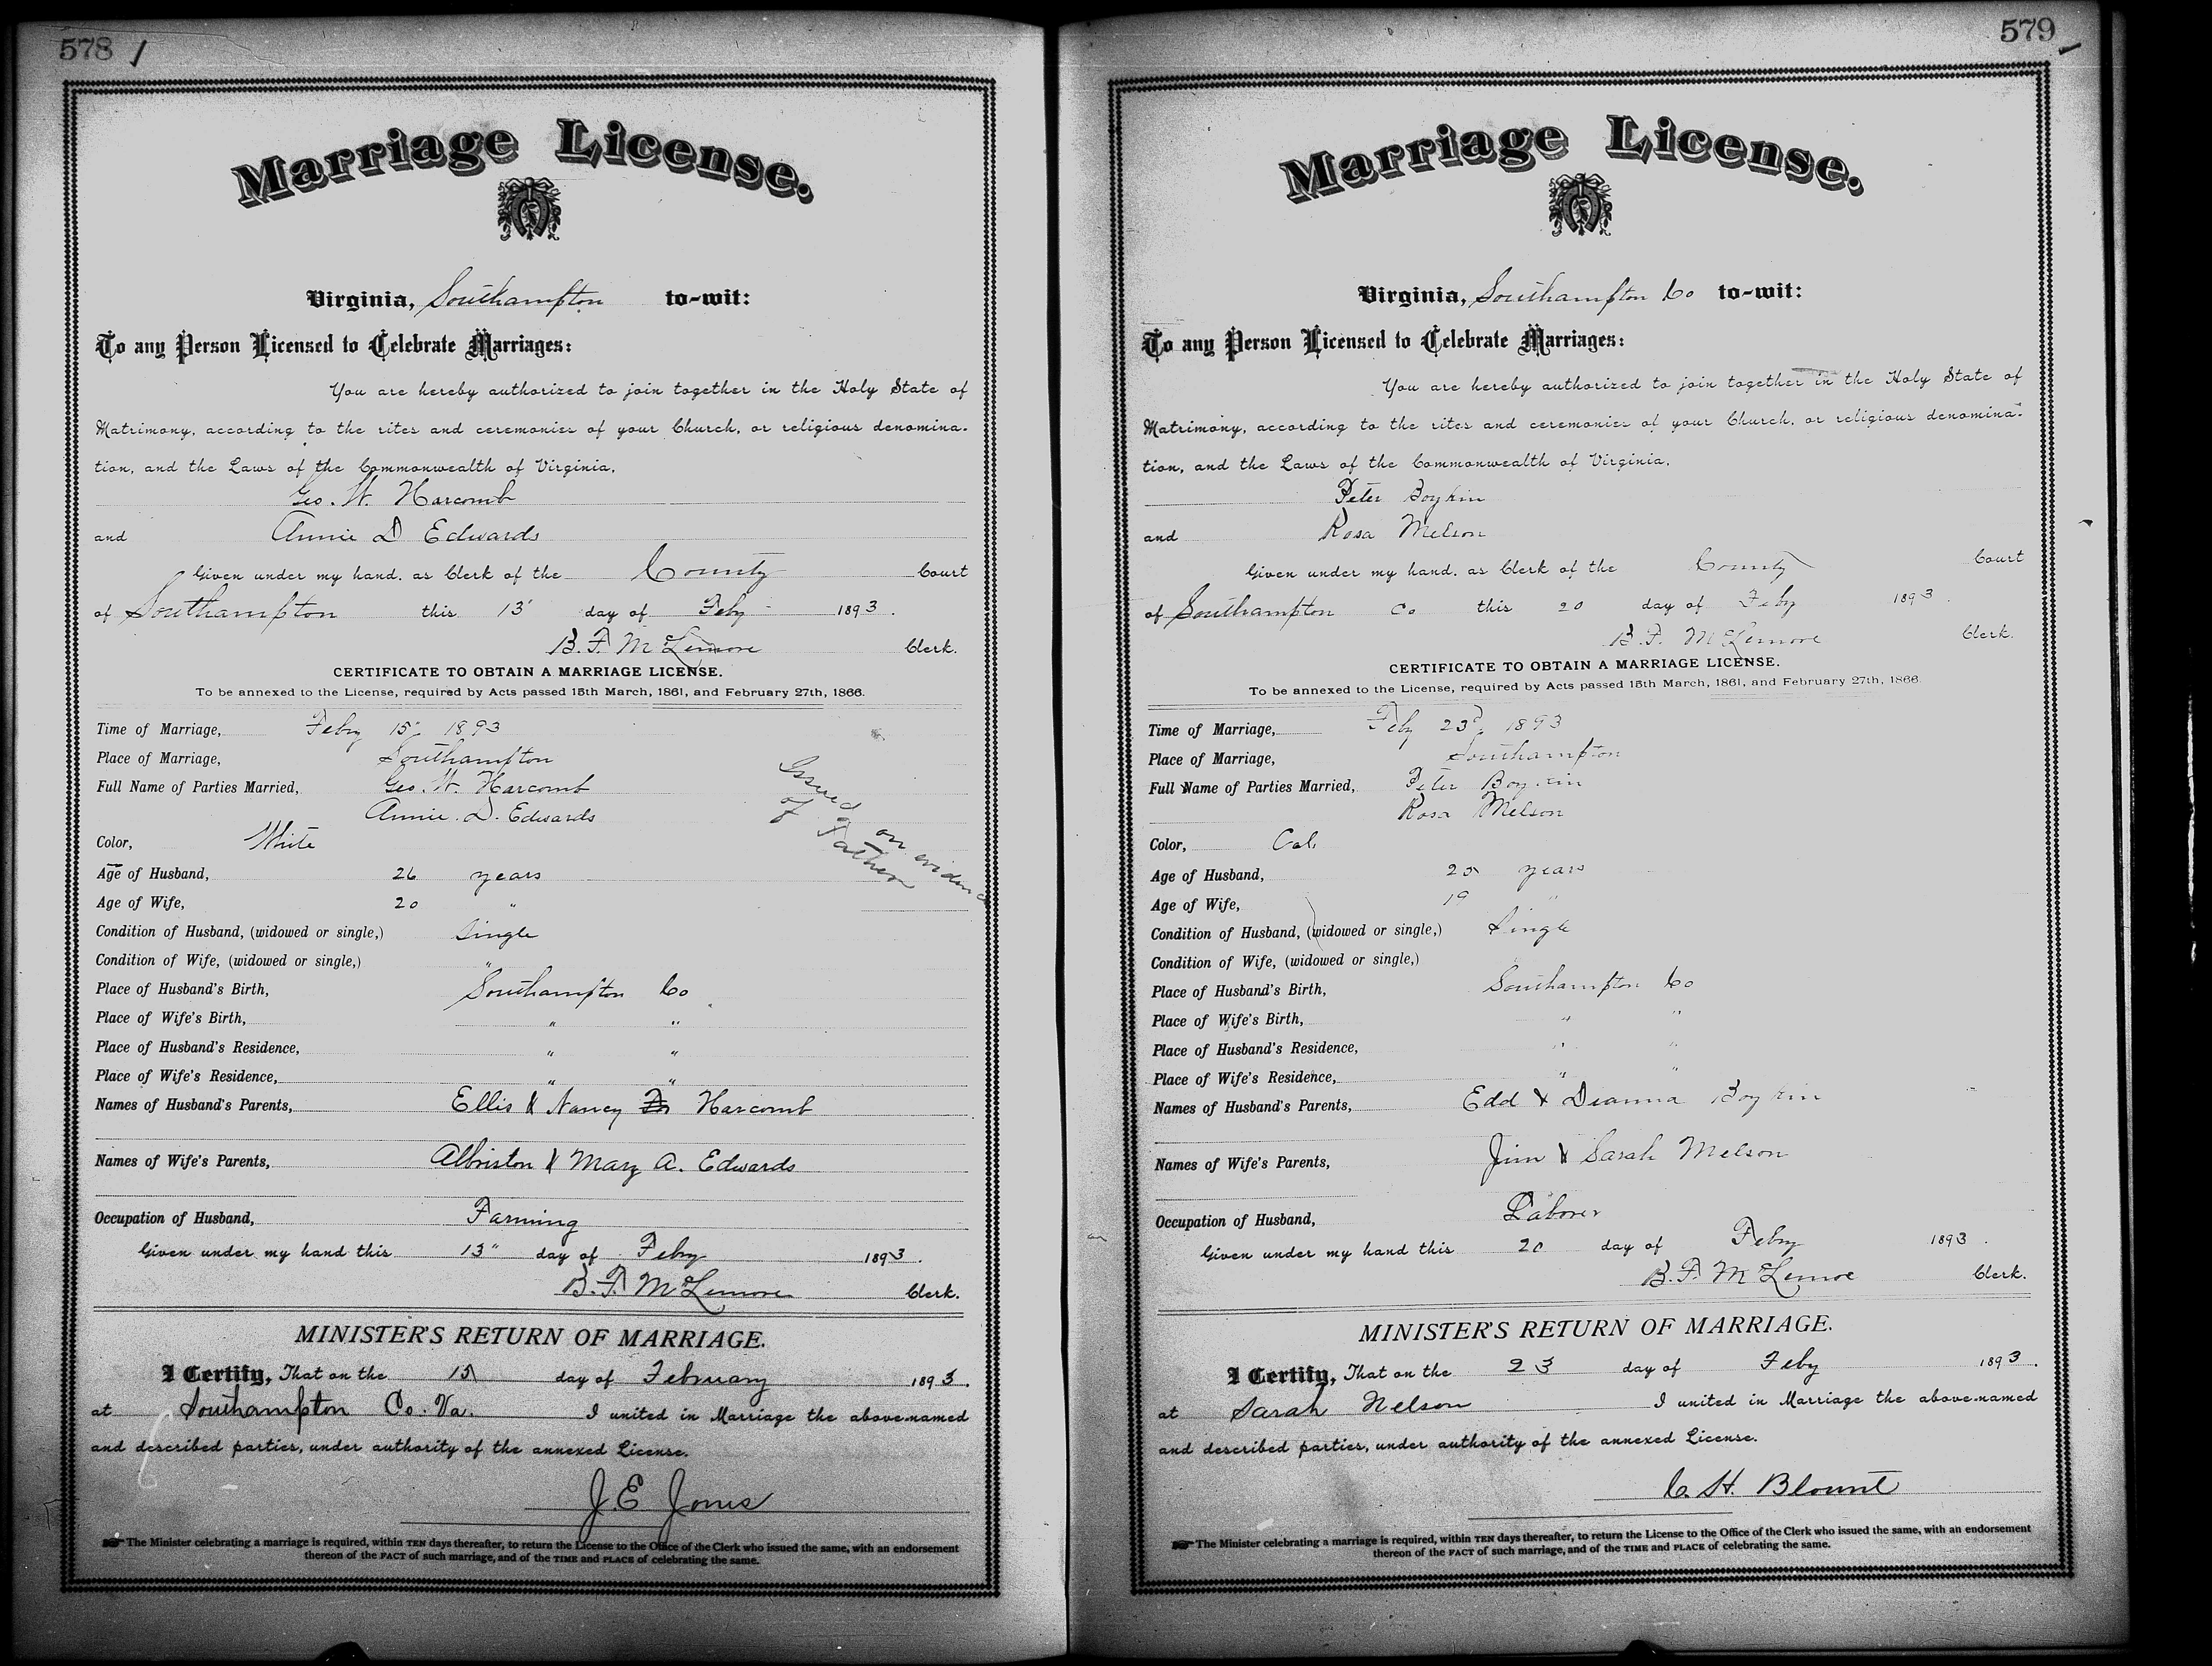 578
Marriage License.
Virginia, Southampton to-wit:
To any Person Licensed to Celebrate Marriages:
You are hereby authorized to join together in the Holy State of
Matrimony, according to the rites and ceremonies of your Church, or religious denomina-
tion, and the Laws of the Commonwealth of Virginia,
Geo. W. Harcomb
and Annie D Edwards
Given under my hand, as Clerk of the County Court
of Southampton this 13" day of Feby 1893.
B. F. McLemore Clerk.
CERTIFICATE TO OBTAIN A MARRIAGE LICENSE.
To be annexed to the License, required by Acts passed 15th March, 1861, and February 27th, 1866.
Time of Marriage, Feby 15", 1893
Place of Marriage, Southampton
Full Name of Parties Married, Geo. W. Harcomb
Annie. D. Edwards
Issued on evidence
of Father
Color, White
Age of Husband, 26 years
Age of Wife, 20 "
Condition of Husband, (widowed or single,) Single
Condition of Wife, (widowed or single,) "
Place of Husband's Birth, Southampton Co
Place of Wife's Birth, " "
Place of Husband's Residence, " "
Place of Wife's Residence, " "
Names of Husband's Parents, Ellis & Nancy Harcomb
Names of Wife's Parents, Albriston & Mary A. Edwards
Occupation of Husband, Farming
Given under my hand this 13" day of Feby 1893.
B. F. McLemore Clerk.
MINISTER'S RETURN OF MARRIAGE.
I Certify, That on the 15 day of February 1893.
at Southampton Co. Va. I united in Marriage the above-named
and described parties, under authority of the annexed License.
J. E Jones
The Minister celebrating a marriage is required, within TEN days thereafter, to return the License to the Office of the Clerk who issued the same, with an endorsement
thereon of the FACT of such marriage, and of the TIME and PLACE of celebrating the same.
579
Marriage License.
Virginia, Southampton Co to-wit:
To any Person Licensed to Celebrate Marriages:
You are hereby authorized to join together in the Holy State of
Matrimony, according to the rites and ceremonies of your Church, or religious denomina-
tion, and the Laws of the Commonwealth of Virginia,
Peter Boykin
and Rosa Melson
Given under my hand, as Clerk of the County Court
of Southampton Co this 20 day of Feby 1893.
B. F. McLemore Clerk.
CERTIFICATE TO OBTAIN A MARRIAGE LICENSE.
To be annexed to the License, required by Acts passed 15th March, 1861, and February 27th, 1866.
Time of Marriage, Feby 23d, 1893
Place of Marriage, Southampton
Full Name of Parties Married, Peter Boykin
Rosa Melson
Color, Col.
Age of Husband, 25 years
Age of Wife, 19 "
Condition of Husband, (widowed or single,) Single
Condition of Wife, (widowed or single,)
Place of Husband's Birth, Southampton Co
Place of Wife's Birth, " "
Place of Husband's Residence, " "
Place of Wife's Residence, " "
Names of Husband's Parents, Edd & Dianna Boykin
Names of Wife's Parents, Jim & Sarah Melson
Occupation of Husband, Laborer
Given under my hand this 20 day of Feby 1893.
B. F. McLemoe Clerk.
MINISTER'S RETURN OF MARRIAGE.
I Certify, That on the 23 day of Feby 1893.
at Sarah Nelson I united in Marriage the above-named
and described parties, under authority of the annexed License.
C. H. Blount
The Minister celebrating a marriage is required, within TEN days thereafter, to return the License to the Office of the Clerk who issued the same, with an endorsement
thereon of the FACT of such marriage, and of the TIME and PLACE of celebrating the same.